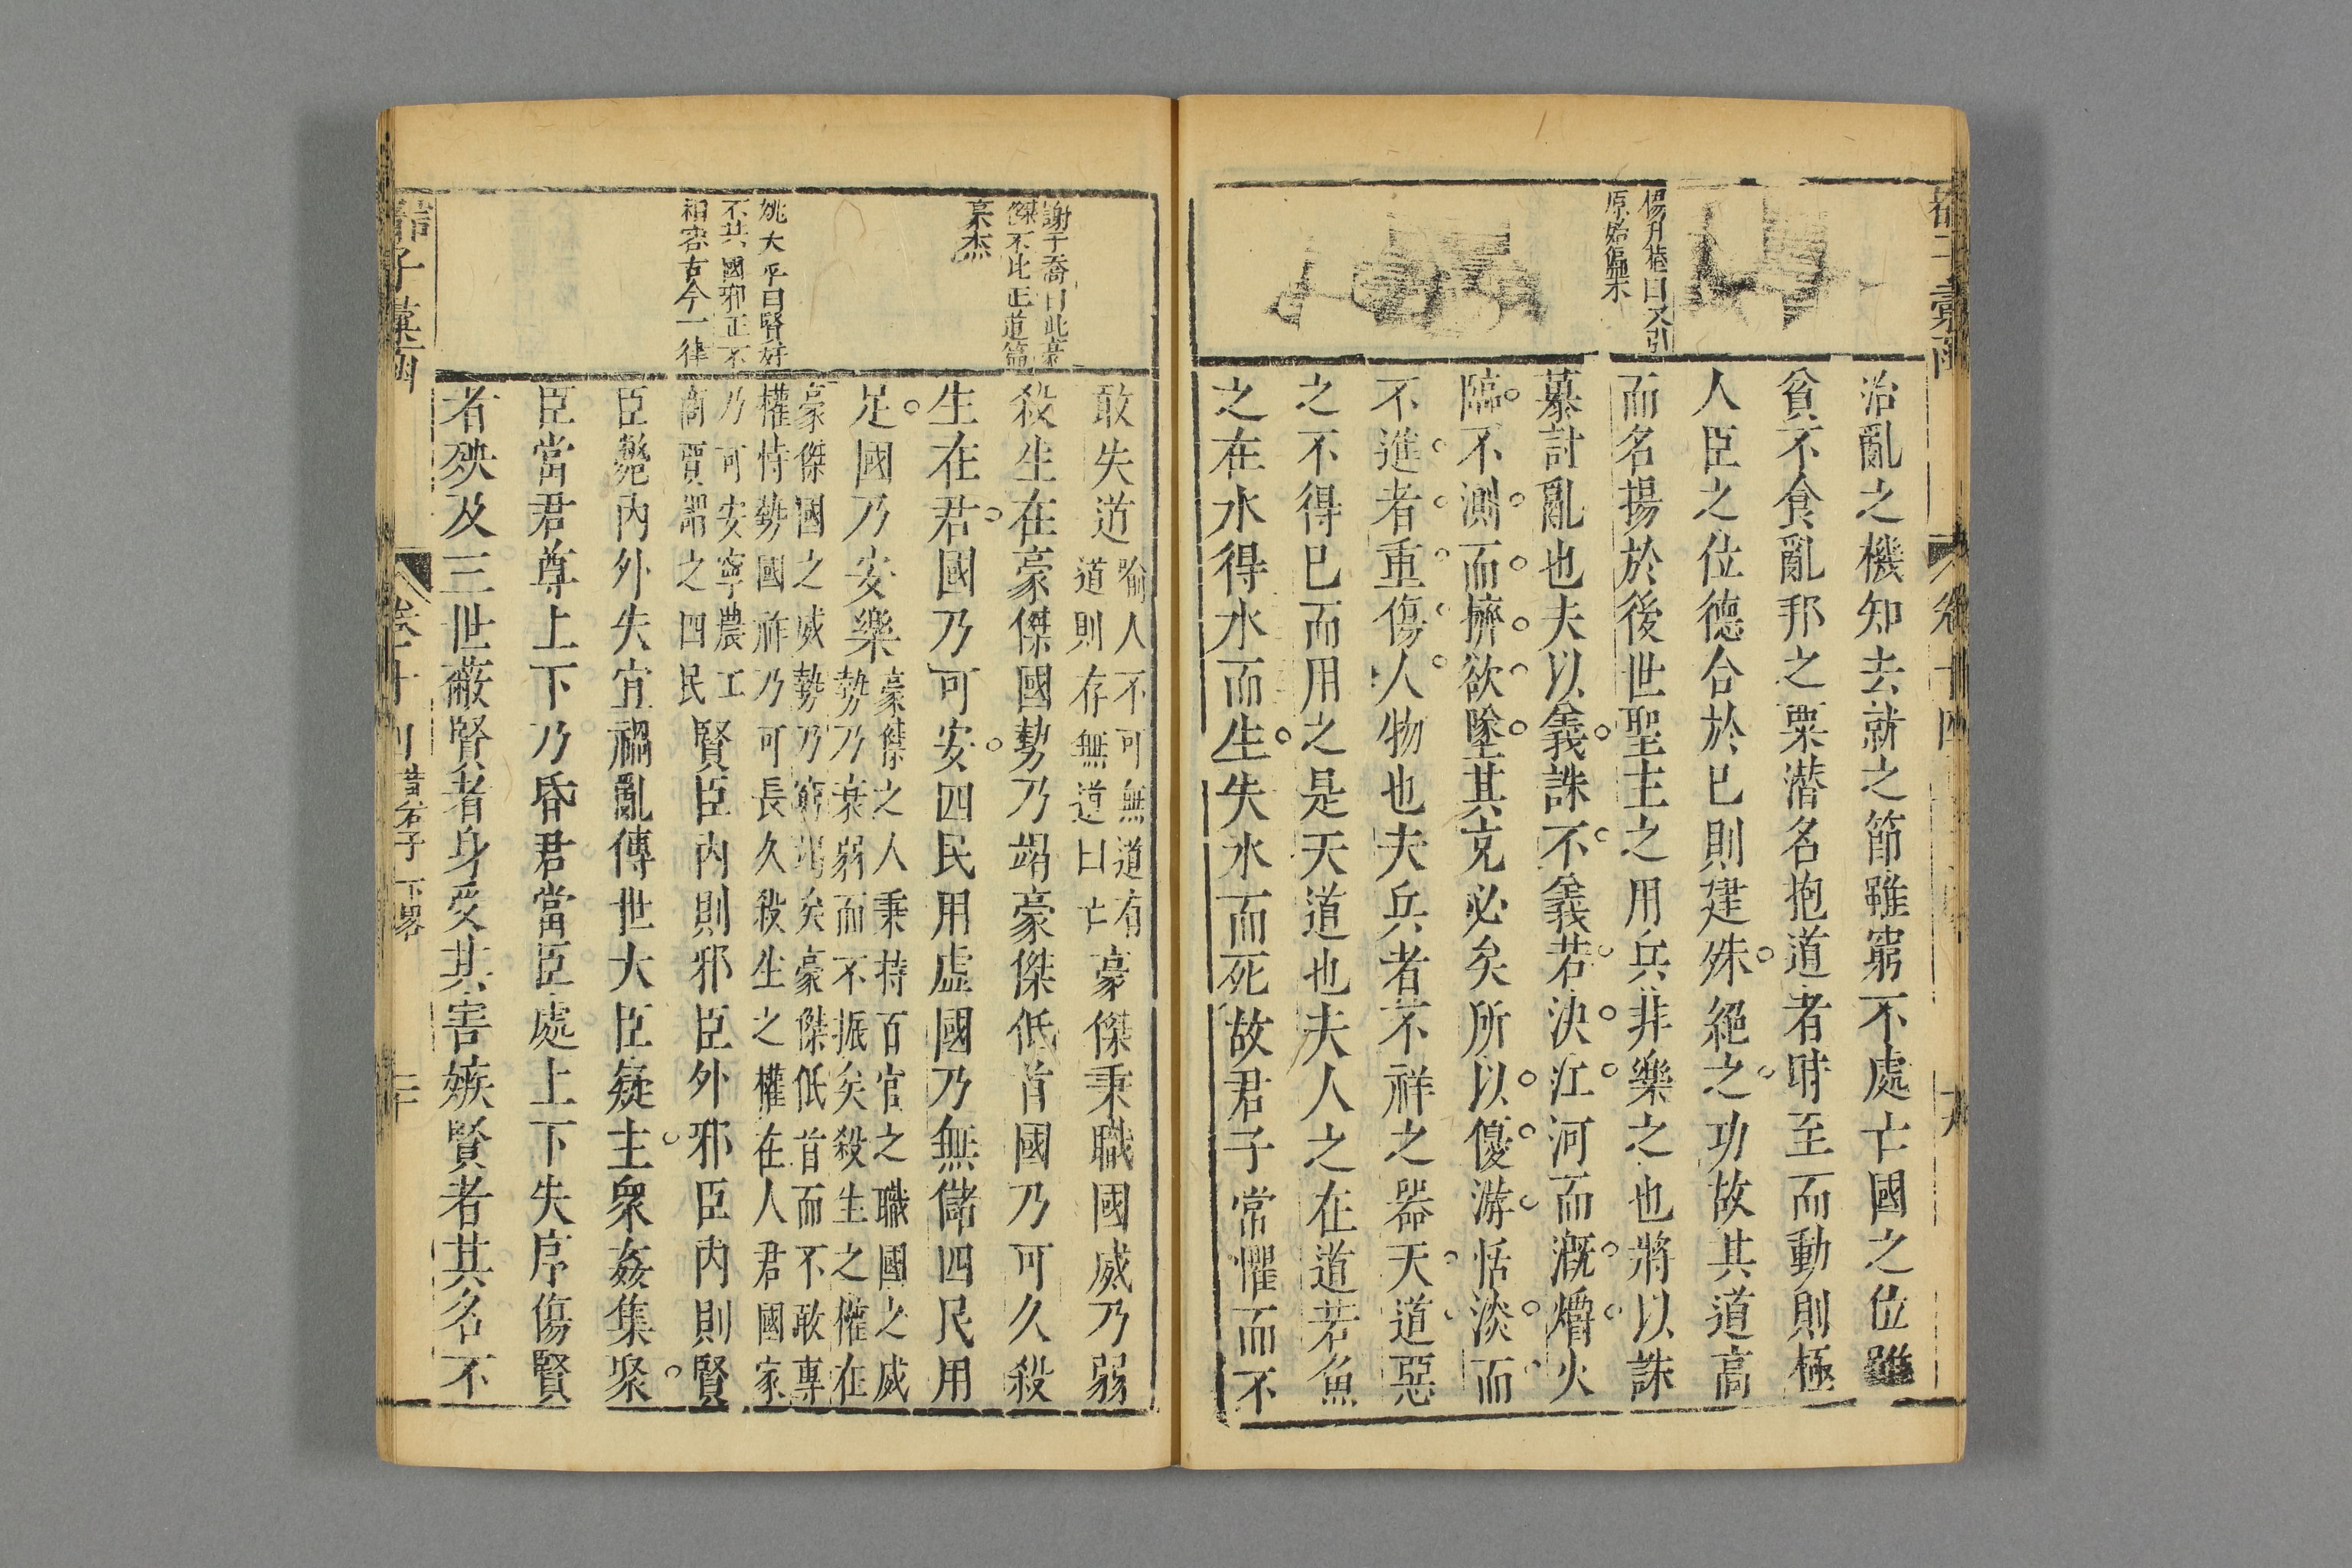 楊升菴曰又引
原始偏末
治亂之機知去就之節雖窮不處亡國之位雖
貧不食亂邦之粟潛名抱道者時至而動則極
人臣之位德合於巳則建殊絕之功故其道高
而名揚於後世聖主之用兵非樂之也將以誅
暴討亂也夫以義誅不義若決江河而漑爝火
臨不測而擠欲墜其克必矣所以優游恬淡而
不進者重傷人物也夫兵者不祥之器天道惡
之不得巳而用之是天道也夫人之在道若魚
之在水得水而生失水而死故君子常懼而不
謝子喬曰此豪
傑不比正道篇
豪杰
姚大平曰賢奸
不共國邪正不
相容古今一律
敢失道
喻人不可無道有
道則存無道曰亡
豪傑秉職國威乃弱
殺生在豪傑國勢乃竭豪傑低首國乃可久殺
生在君國乃可安四民用虛國乃無儲四民用
足國乃安樂
豪傑之人秉持百官之職國之威
勢乃衰弱而不振矣殺生之權在
豪傑國之威勢乃窮竭矣豪傑低首而不敢專
權恃勢國祚乃可長久殺生之權在人君國家
乃可安寧農工
商賈謂之四民
賢臣內則邪臣外邪臣內則賢
臣斃內外失宜禍亂傳世大臣疑主衆姦集聚
臣當君尊上下乃昏君當臣處上下失序傷賢
者殃及三世蔽賢者身受其害嫉賢者其名不
卷十四
黃石子
下畧
二十